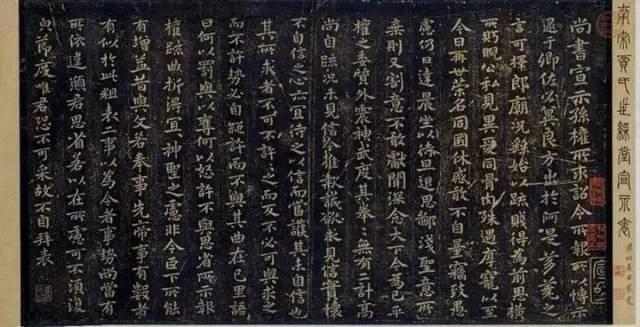 南宋賈氏世綵堂宣示
尚書宣示孫權所求詔令所報所以博示
逮于卿佐必冀良方出於阿是芻蕘之
言可擇郎廟況繇始以疏賤得為前恩橫
所盼睨公私見異愛同骨肉殊遇厚寵以至
今日再世榮名同國休慼敢不自量竊致愚
慮仍日達晨坐以待旦退思鄙淺聖意所
棄則又割意不敢獻聞深念天下今為已平
權之委質外震神武度其拳拳無有二計高
尚自疏況未見信今推款誠欲求見信實懷
不自信之心亦宜待之以信而當護其未自信也
其所求者不可不許許之而反不必可與求之
而不許勢必自絕許而不與其曲在己里語
曰何以罰與以奪何以怒許不與思省所示報
權疏曲折得宜宜神聖之慮非今臣下所能
有增益昔與文若奉事先帝事有數者
有似於此粗表二事以為今者事勢尚當有
所依違願君思省若以在所慮可不須復
貌節度唯君恐不可采故不自拜表